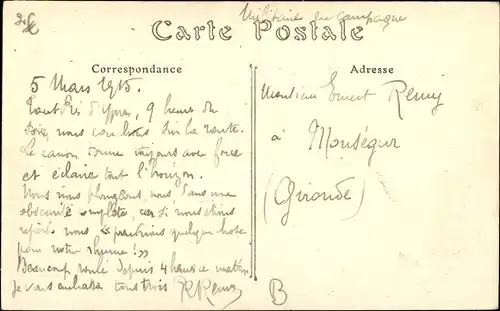 Militaire en campagne
Carte Postale
Correspondance
5 Mars 1915.
Tout Près d'Ypres, 9 heures du
soir, nous couchons sur la route.
Le canon tonne toujours avec force
et éclaire tout l'horizon.
Nous nous plongeons, nous, dans une
obscurité complète, car si nous étions
repérés nous « prendrions quelque chose
pour notre rhume !! »
Beaucoup roulé depuis 4 heures ce matin.
Je vous embrasse tous trois R Remy
Adresse
Monsieur Ernest Remy
à Monségur
(Gironde)
B